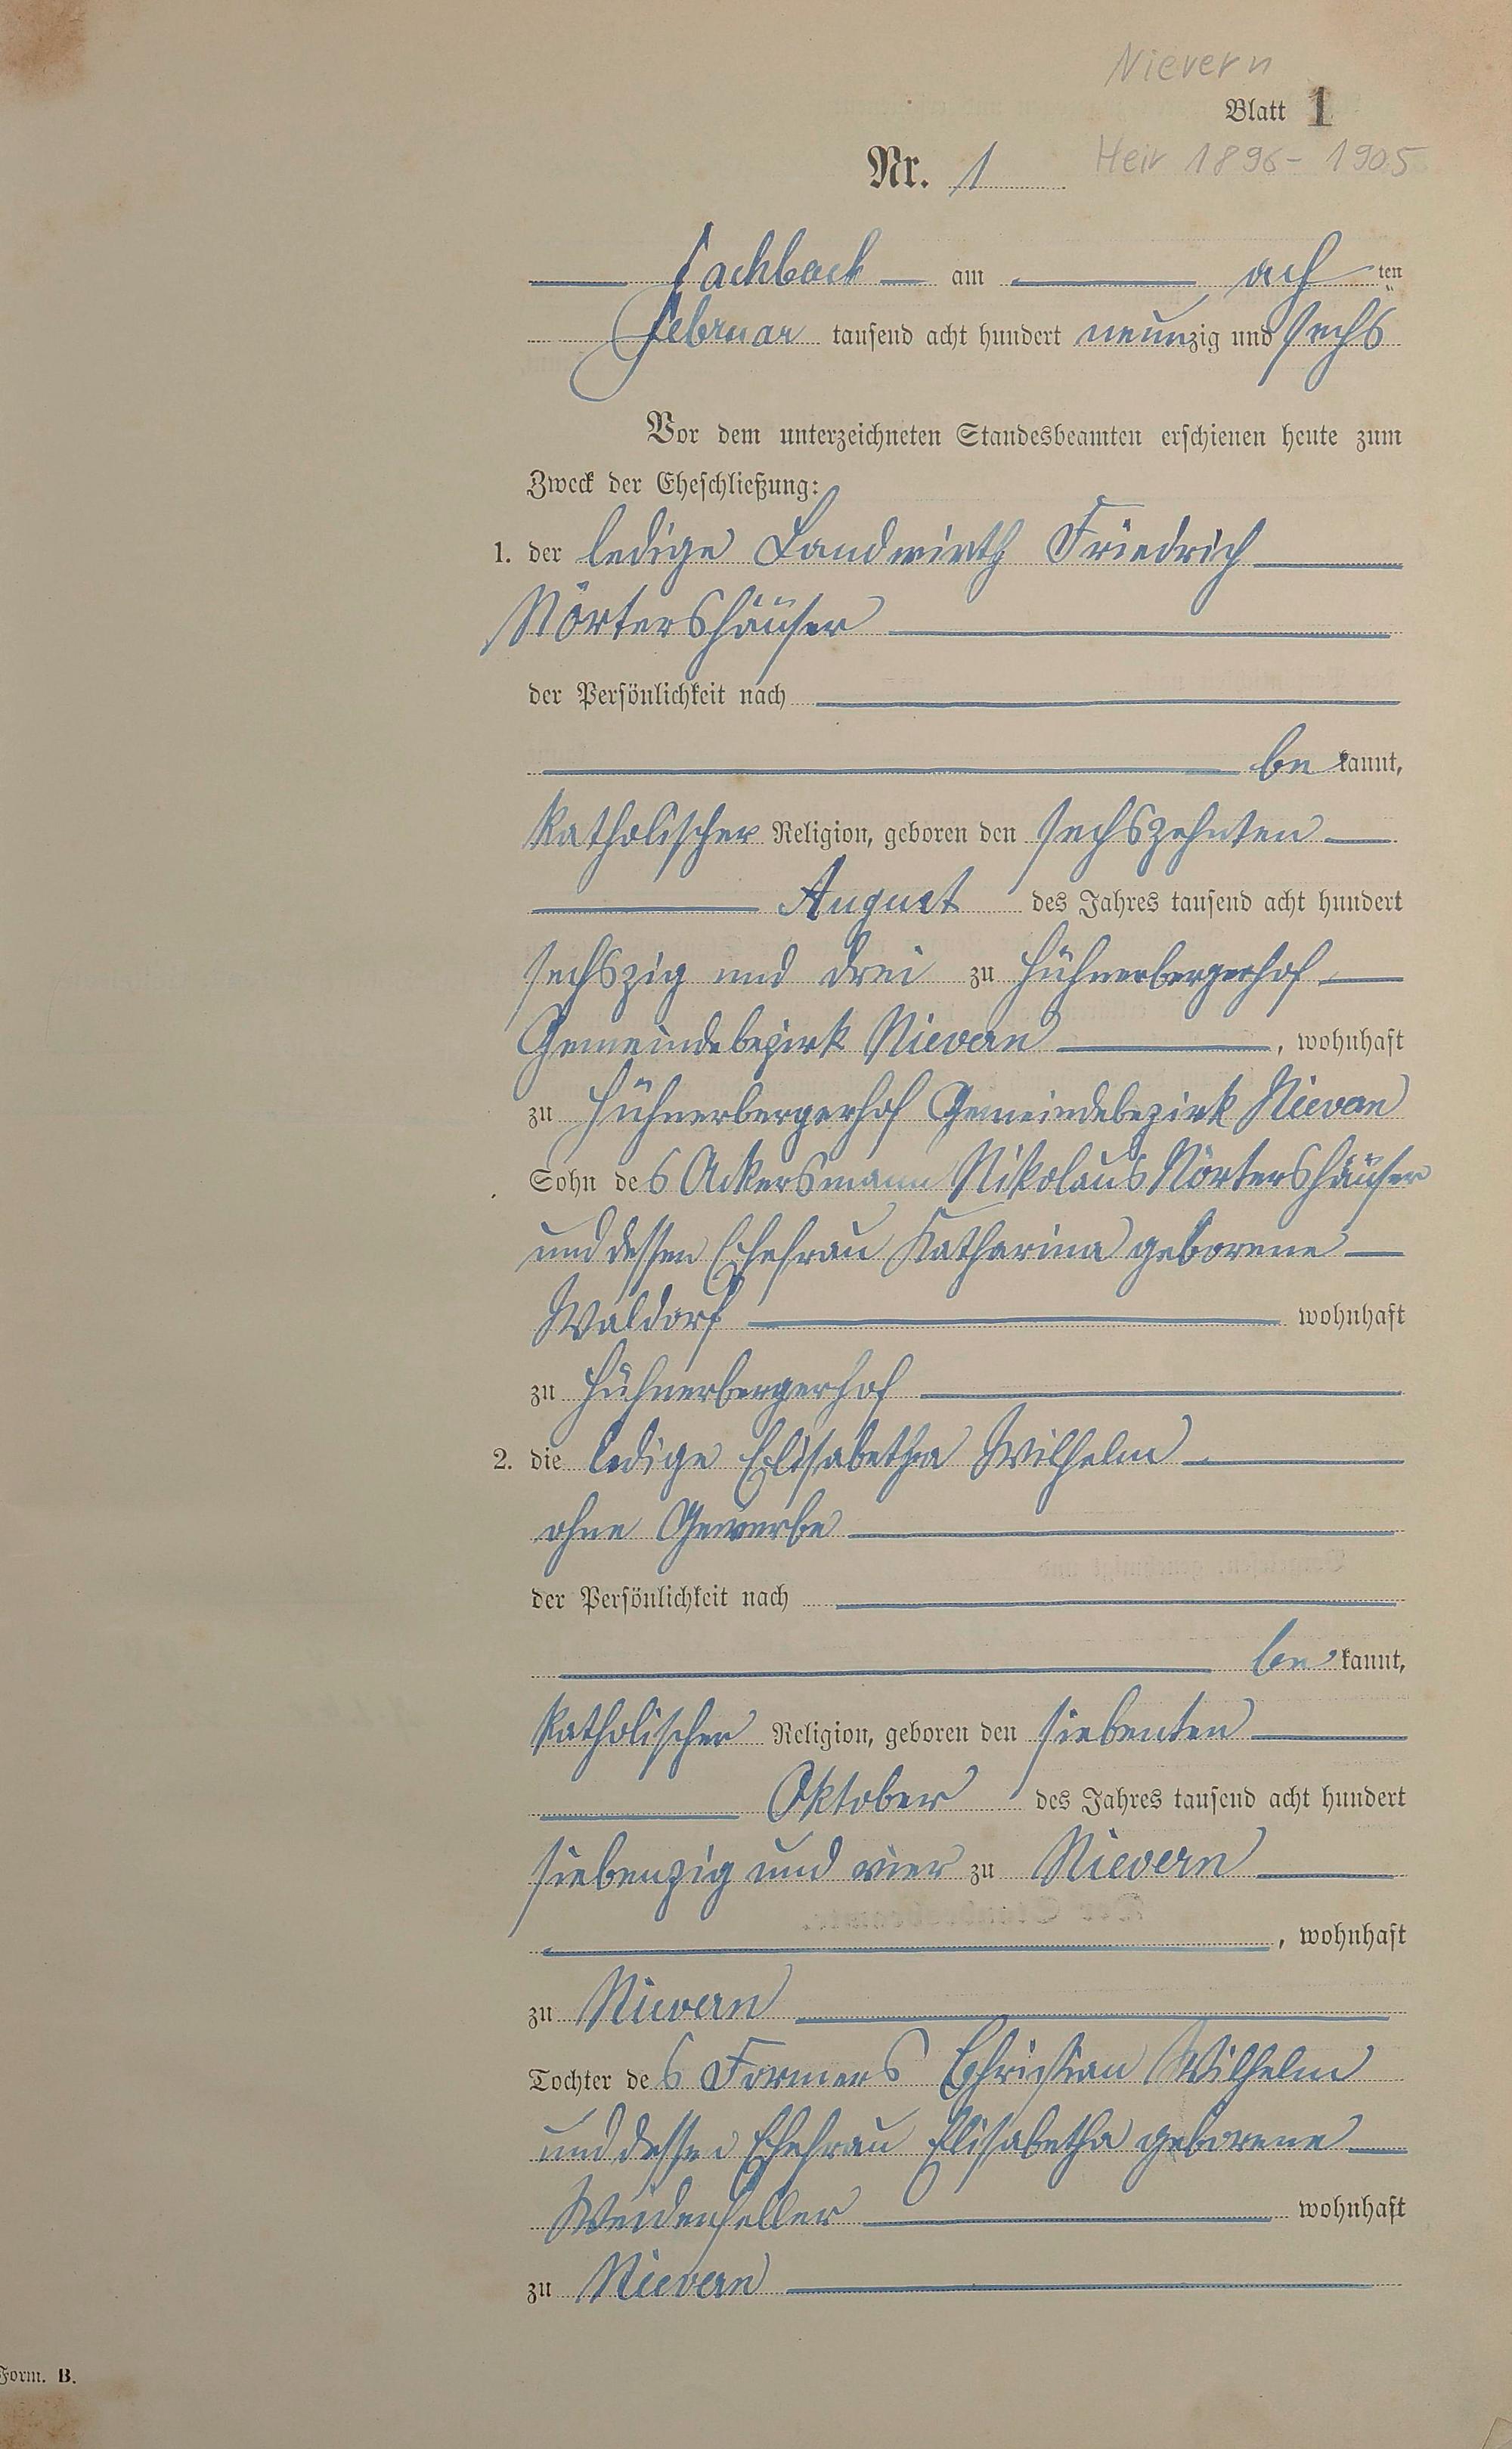 Nievern
Blatt 1
Nr. 1 Heir 1896 - 1905
Fachbach am acht ten
Februar tausend acht hundert neunzig und sechs
Vor dem unterzeichneten Standesbeamten erschienen heute zum
Zweck der Eheschließung:
1. der ledige Landwirth Friedrich
Mörtershäuser
der Persönlichkeit nach
be kannt,
katholischer Religion, geboren den sechszehnten
August des Jahres tausend acht hundert
sechszig und drei zu Hühnerbergerhof
Gemeindebezirk Nievern, wohnhaft
zu Hühnerbergerhof Gemeindebezirk Nievern
Sohn des Ackersmann Nikolaus Mörtershäuser
und dessen Ehefrau Katharina geborene
Waldorf wohnhaft
zu Hühnerbergerhof
2. die ledige Elisabetha Wilhelm
ohne Gewerbe
der Persönlichkeit nach
be kannt,
katholischer Religion, geboren den siebenten
Oktober des Jahres tausend acht hundert
siebenzig und vier zu Nievern
, wohnhaft
zu Nievern
Tochter des Formers Christian Wilhelm
und dessen Ehefrau Elisabetha geborene
Weidenfeller wohnhaft
zu Nievern
Form. B.